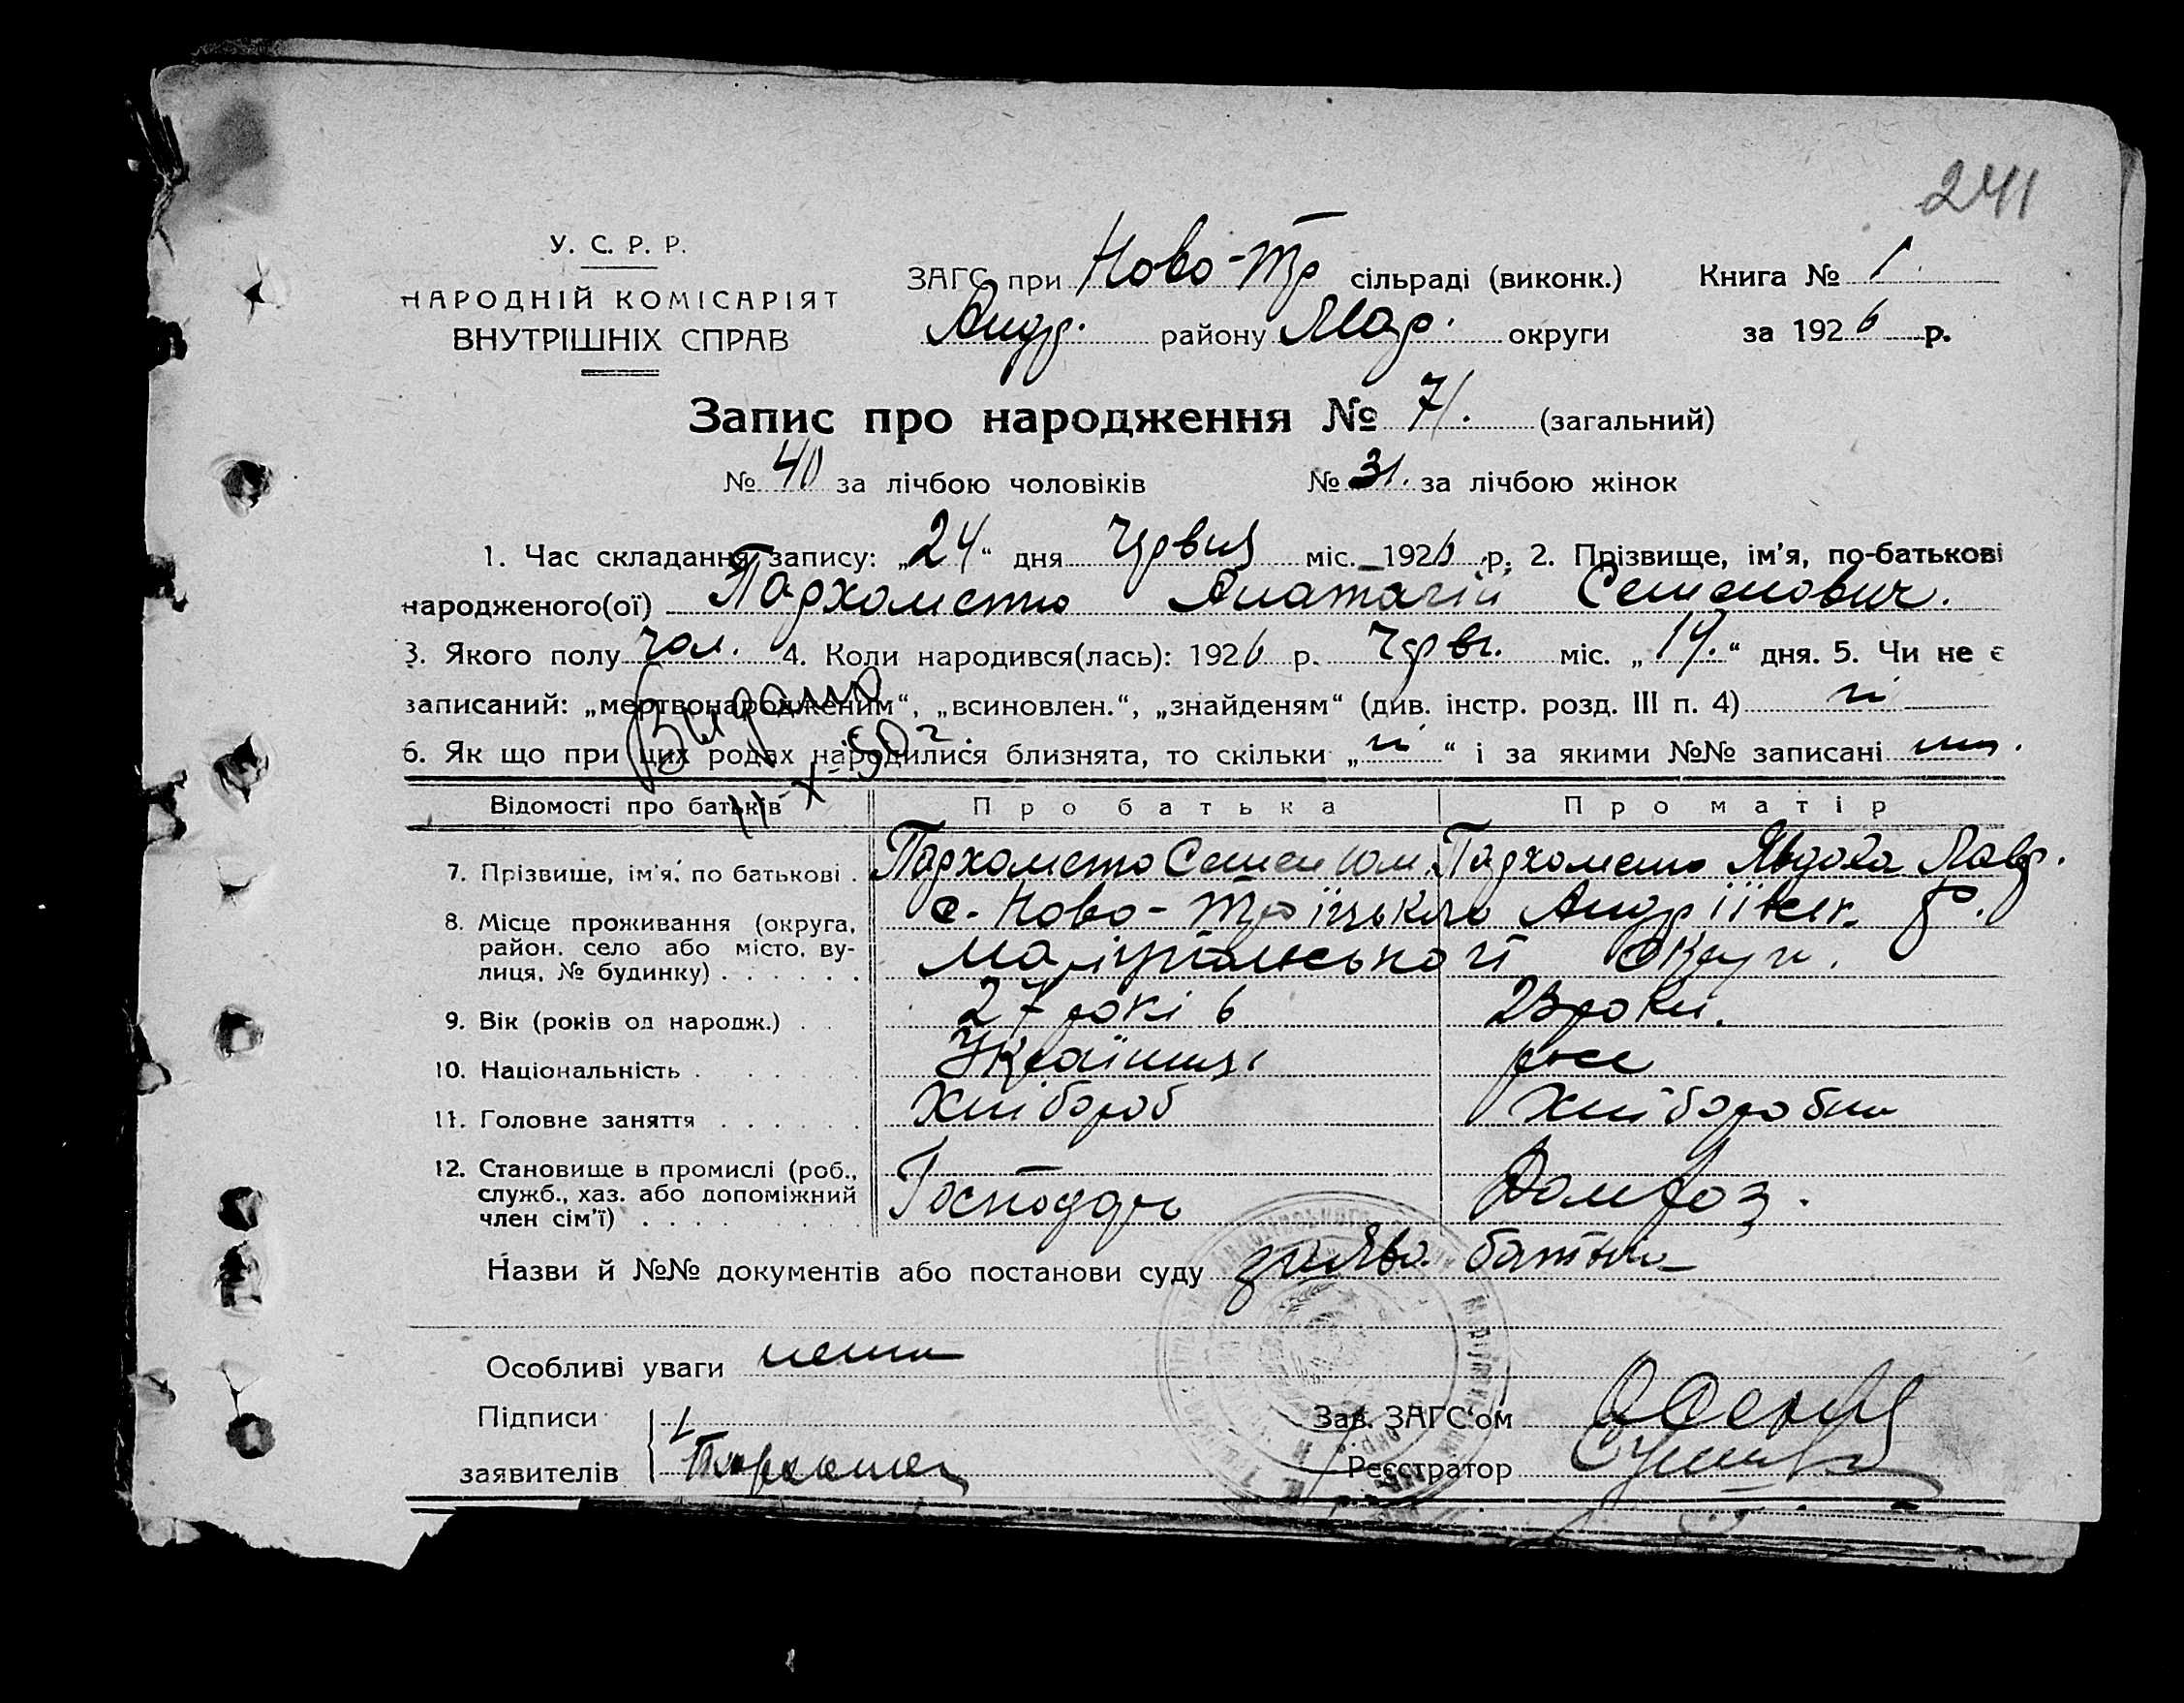 241
У. С. Р. Р.
НАРОДНІЙ КОМІСАРІЯТ
ВНУТРІШНІХ СПРАВ
ЗАГС при Ново-Тр сільраді (виконк.) Книга № 1.
Андр. району Мар. округи за 1926 р.
Запис про народження № 71. (загальний)
№ 40 за лічбою чоловіків № 31. за лічбою жінок
1. Час складання запису: „24“ дня Червня міс. 1926 р. 2. Прізвище, ім'я, по-батькові
народженого(ої) Пархоменко Анатолій Семенович.
3. Якого полу чол. 4. Коли народився(лась): 1926 р. Черв. міс. „19.“ дня. 5. Чи не є
записаний: „мертвонародженим“, „всиновлен.“, „знайденям“ (див. інстр. розд. III п. 4) ні
6. Як що при цих родах народилися близнята, то скільки „ні“ і за якими №№ записані
Видано
11 X 50 г.
Відомості про батьків Про батька Про матір
7. Прізвише, ім'я, по батькові . Пархоменко Семен Пархоменко Явдоха Лавр.
8. Місце проживання (округа, с. Ново-Троїцького Андріївськ. р.
район, село або місто, ву-
лиця, № будинку) . . . . . . Маріупільської округи.
9. Вік (років од народж.) . . 27 років 23 роки.
10. Національність . Українці
11. Головне заняття . . . . . . Хлібороб Хліборобка
12. Становище в промислі (роб.,
служб., хаз. або допоміжний Господарь Домгоз.
член сім'ї) . . . . . . . .
Назви й №№ документів або постанови суду заява батька
Особливі уваги нема
Підписи 1 Зав. ЗАГС'ом
заявителів Пархоменко Реєстратор